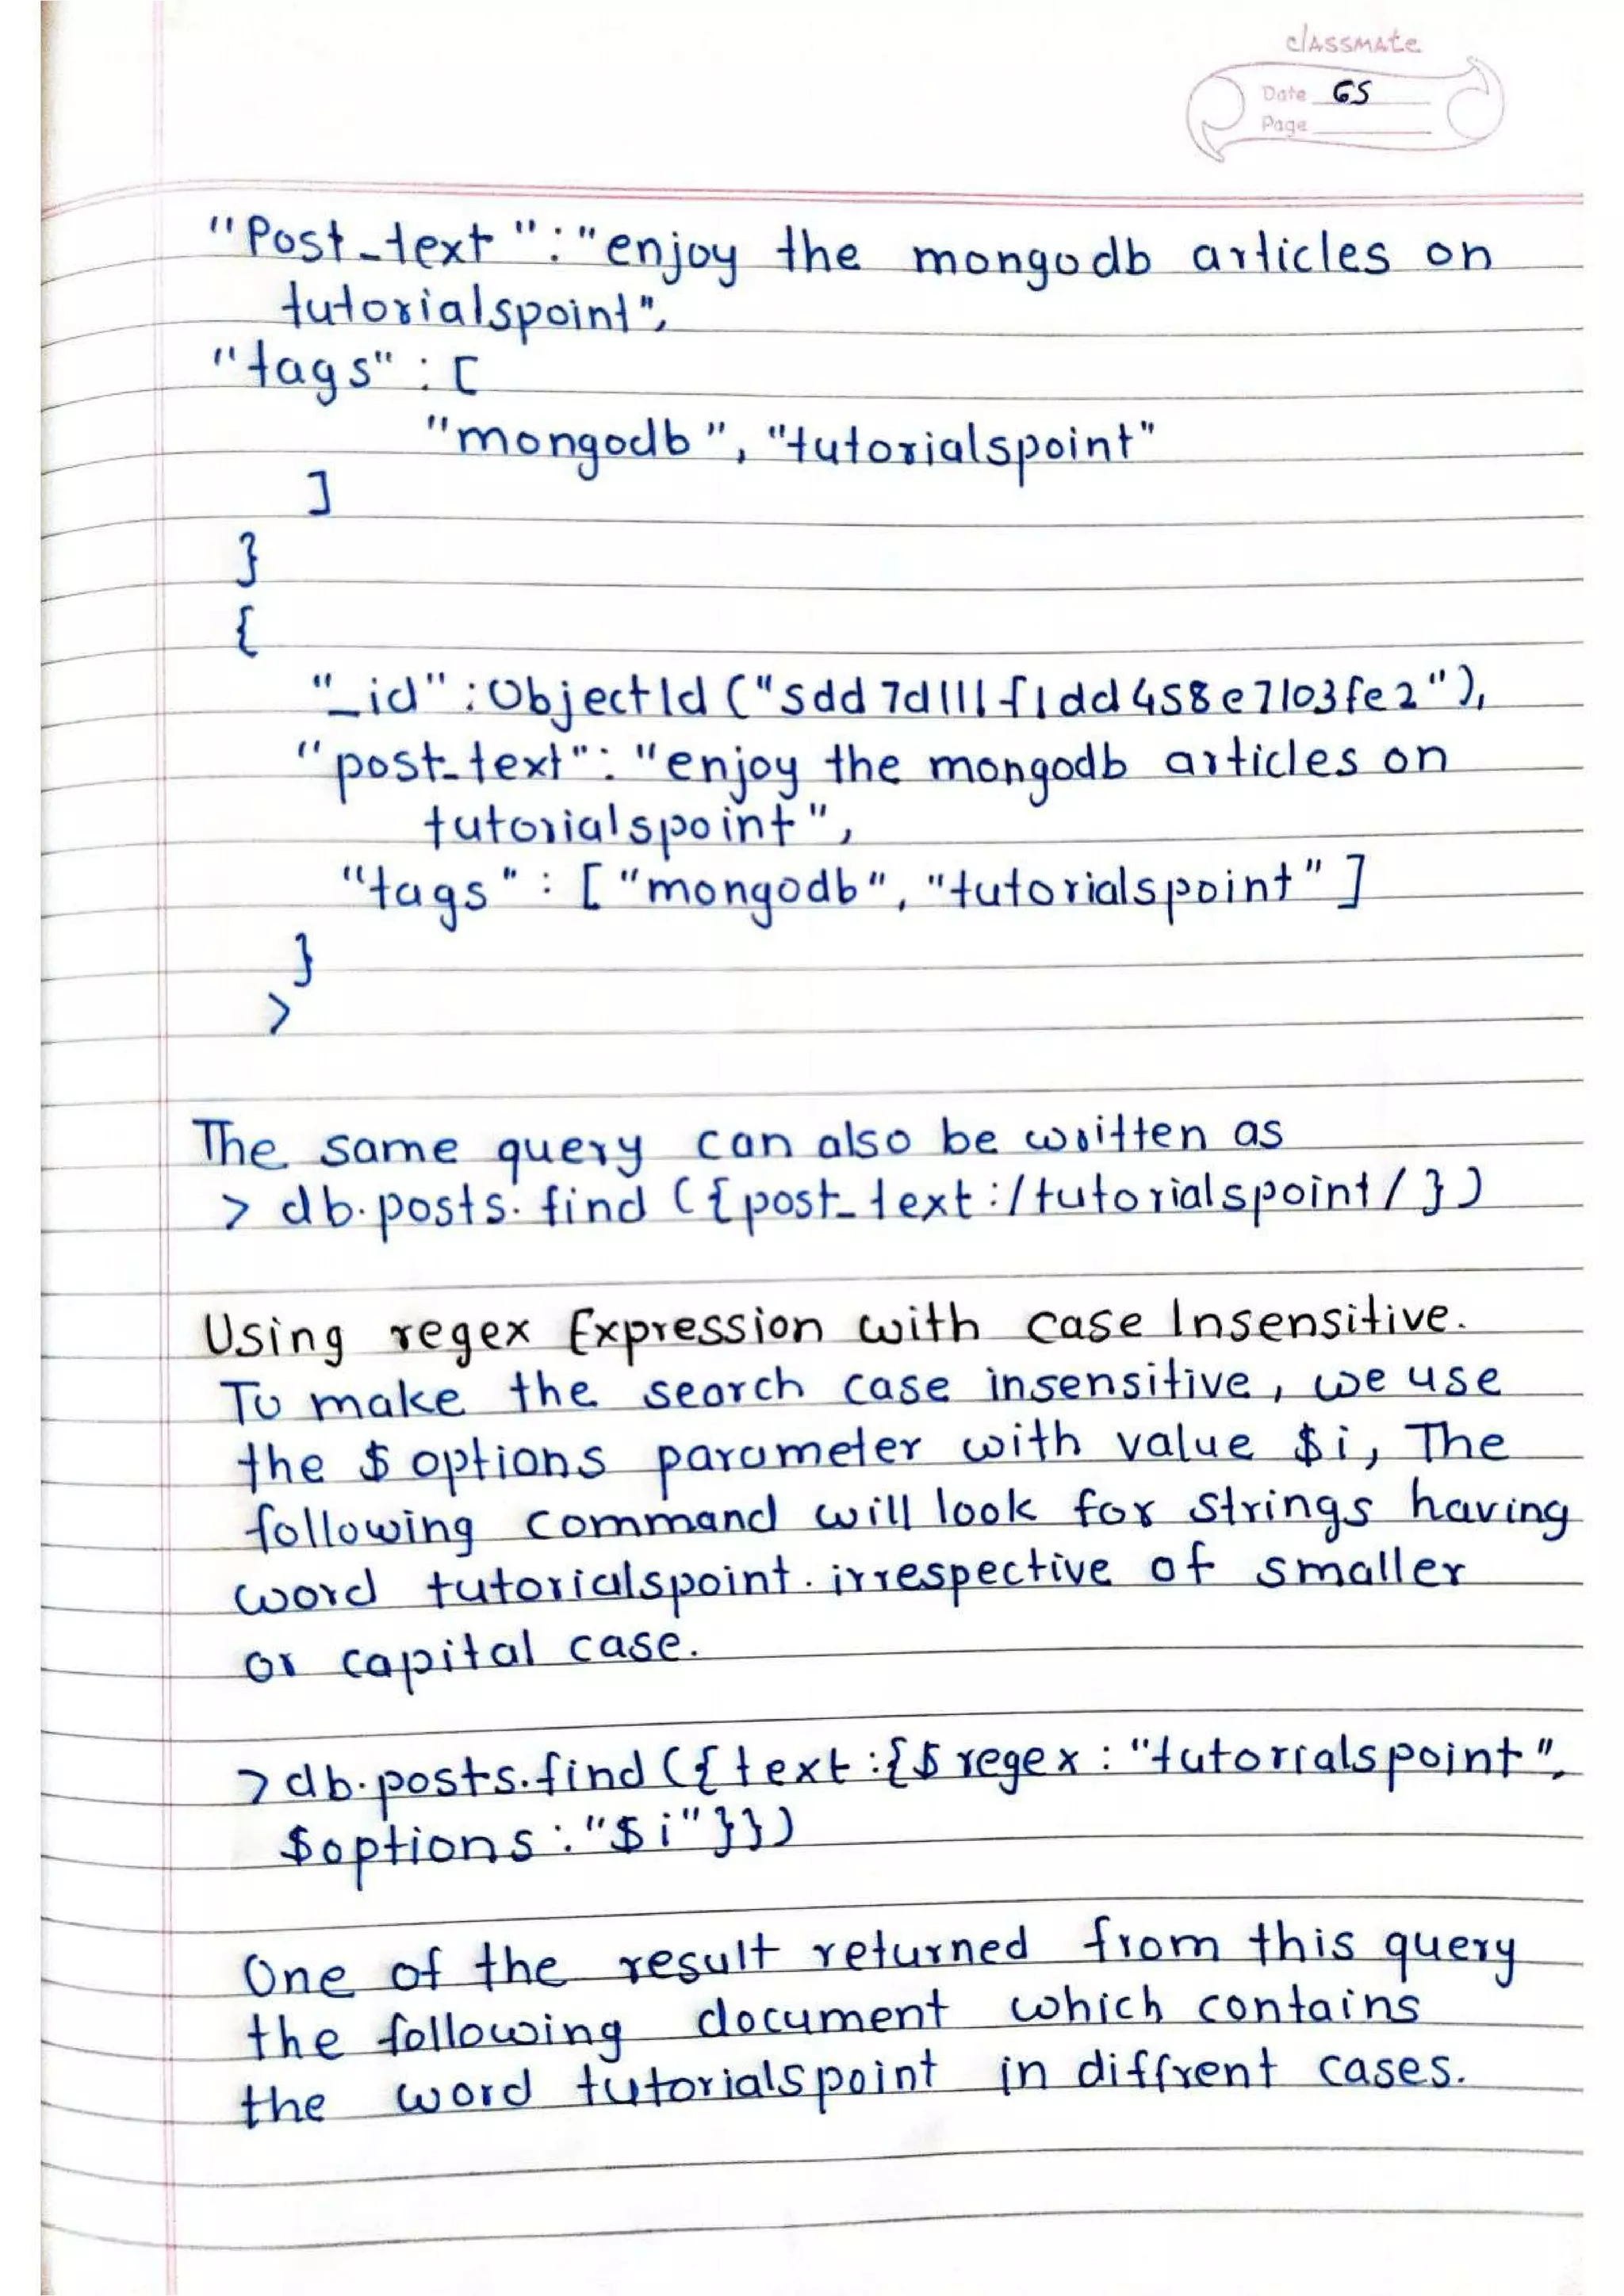 classmate
Date 65
Page
"Post_text" : "enjoy the mongodb articles on
tutorialspoint",
"tags" : [
"mongodb", "tutorialspoint"
]
}
{
"_id" : ObjectId ("5dd7d111f1dd458e7103fe2"),
"post_text" : "enjoy the mongodb articles on
tutorialspoint",
"tags" : ["mongodb", "tutorialspoint"]
}
>
The same query can also be written as
> db.posts.find ({post_text:/tutorialspoint/})
Using regex Expression with case Insensitive.
To make the search case insensitive, we use
the $options parameter with value $i, The
following command will look for strings having
word tutorialspoint. irrespective of smaller
or capital case.
> db.posts.find ({text:{$regex : "tutorialspoint",
$options : "$i"}})
One of the result returned from this query
the following document which contains
the word tutorialspoint in diffrent cases.